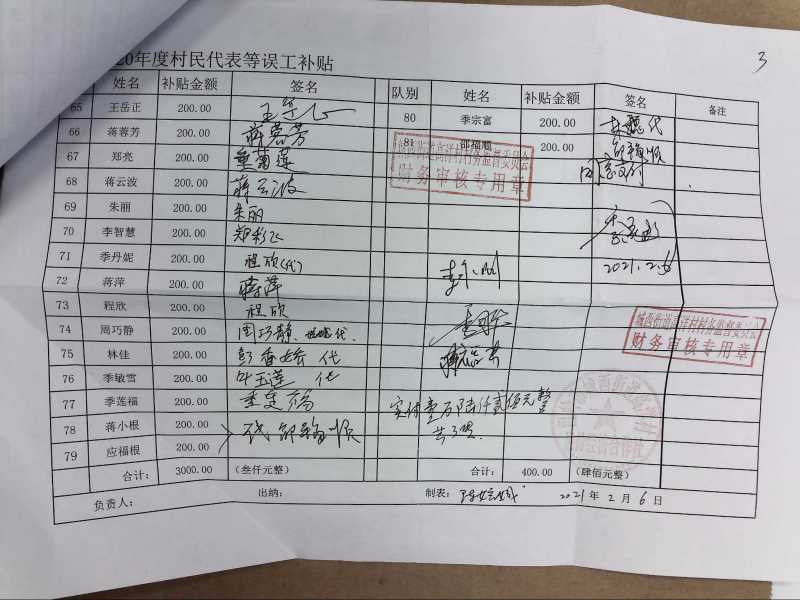 20年度村民代表等误工补贴
3
姓名 补贴金额 签名 队别 姓名 补贴金额 签名 备注
65 王岳正 200.00 80 季宗富 200.00 代
66 蒋蓉芳 200.00 蒋蓉芳 81 邵福顺 200.00 邵福顺
67 郑亮 200.00 季菊莲 同意支付
68 蒋云波 200.00 蒋云波
69 朱丽 200.00 朱丽
70 李智慧 200.00 2021.2.6
71 季丹妮 200.00 程欣(代)
72 蒋萍 200.00 蒋萍
73 程欣 200.00 程欣
74 周巧静 200.00 周巧静 代
75 林佳 200.00 彭香 代
76 季敏雪 200.00 叶玉莲 代
77 季莲福 200.00 季莲福 实付壹万陆仟贰佰元整
78 蒋小根 200.00 代 邵福顺
79 应福根 200.00
合计: 3000.00 (叁仟元整) 合计: 400.00 (肆佰元整)
负责人: 出纳: 制表: 2021年2月6日
城西街道高洋村村务监督委员会
财务审核专用章
城西街道高洋村村务监督委员会
财务审核专用章